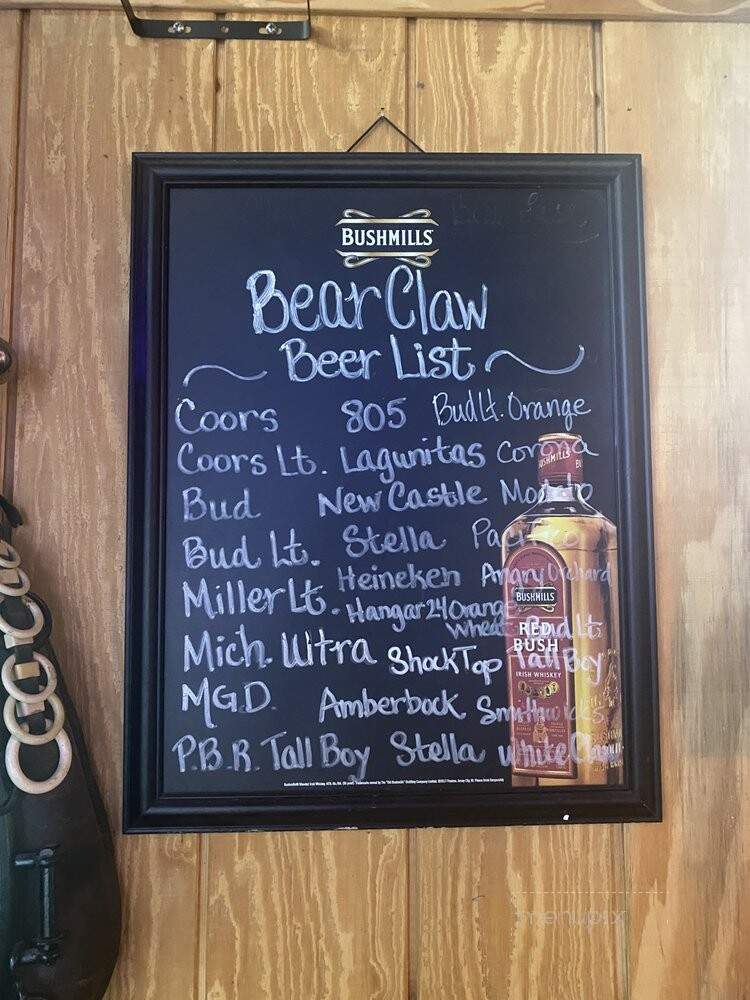 BUSHMILLS
Bear Claw
Beer List
Coors 805 Bud Lt. Orange
Coors Lt. Lagunitas Corona
Bud New Castle Modelo
Bud Lt. Stella Pacifico
Miller Lt. Heineken Angry Orchard
Hangar 24 Orange
Wheat Bud Lt.
Mich. Ultra Shock Top Tall Boy
MGD. Amberbock Smithwicks
P.B.R. Tall Boy Stella White Claw
BUSHMILLS
BUSHMILLS
RED
BUSH
IRISH WHISKEY
menupix